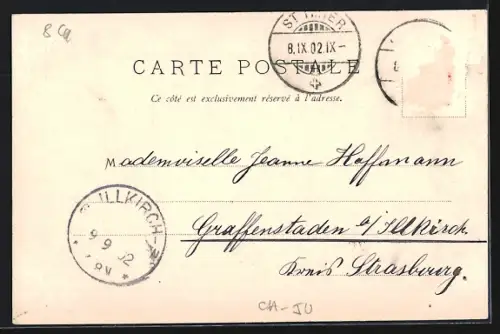 8 Ca
ST IMIER
8.IX.02.IX-
CARTE POSTALE
Ce côté est exclusivement réservé à l'adresse.
Mademoiselle Jeanne Hoffmann
ILLKIRCH-
9 9 02
Graffenstaden a/Illkirch
Kreis Strasbourg.
CH-JU